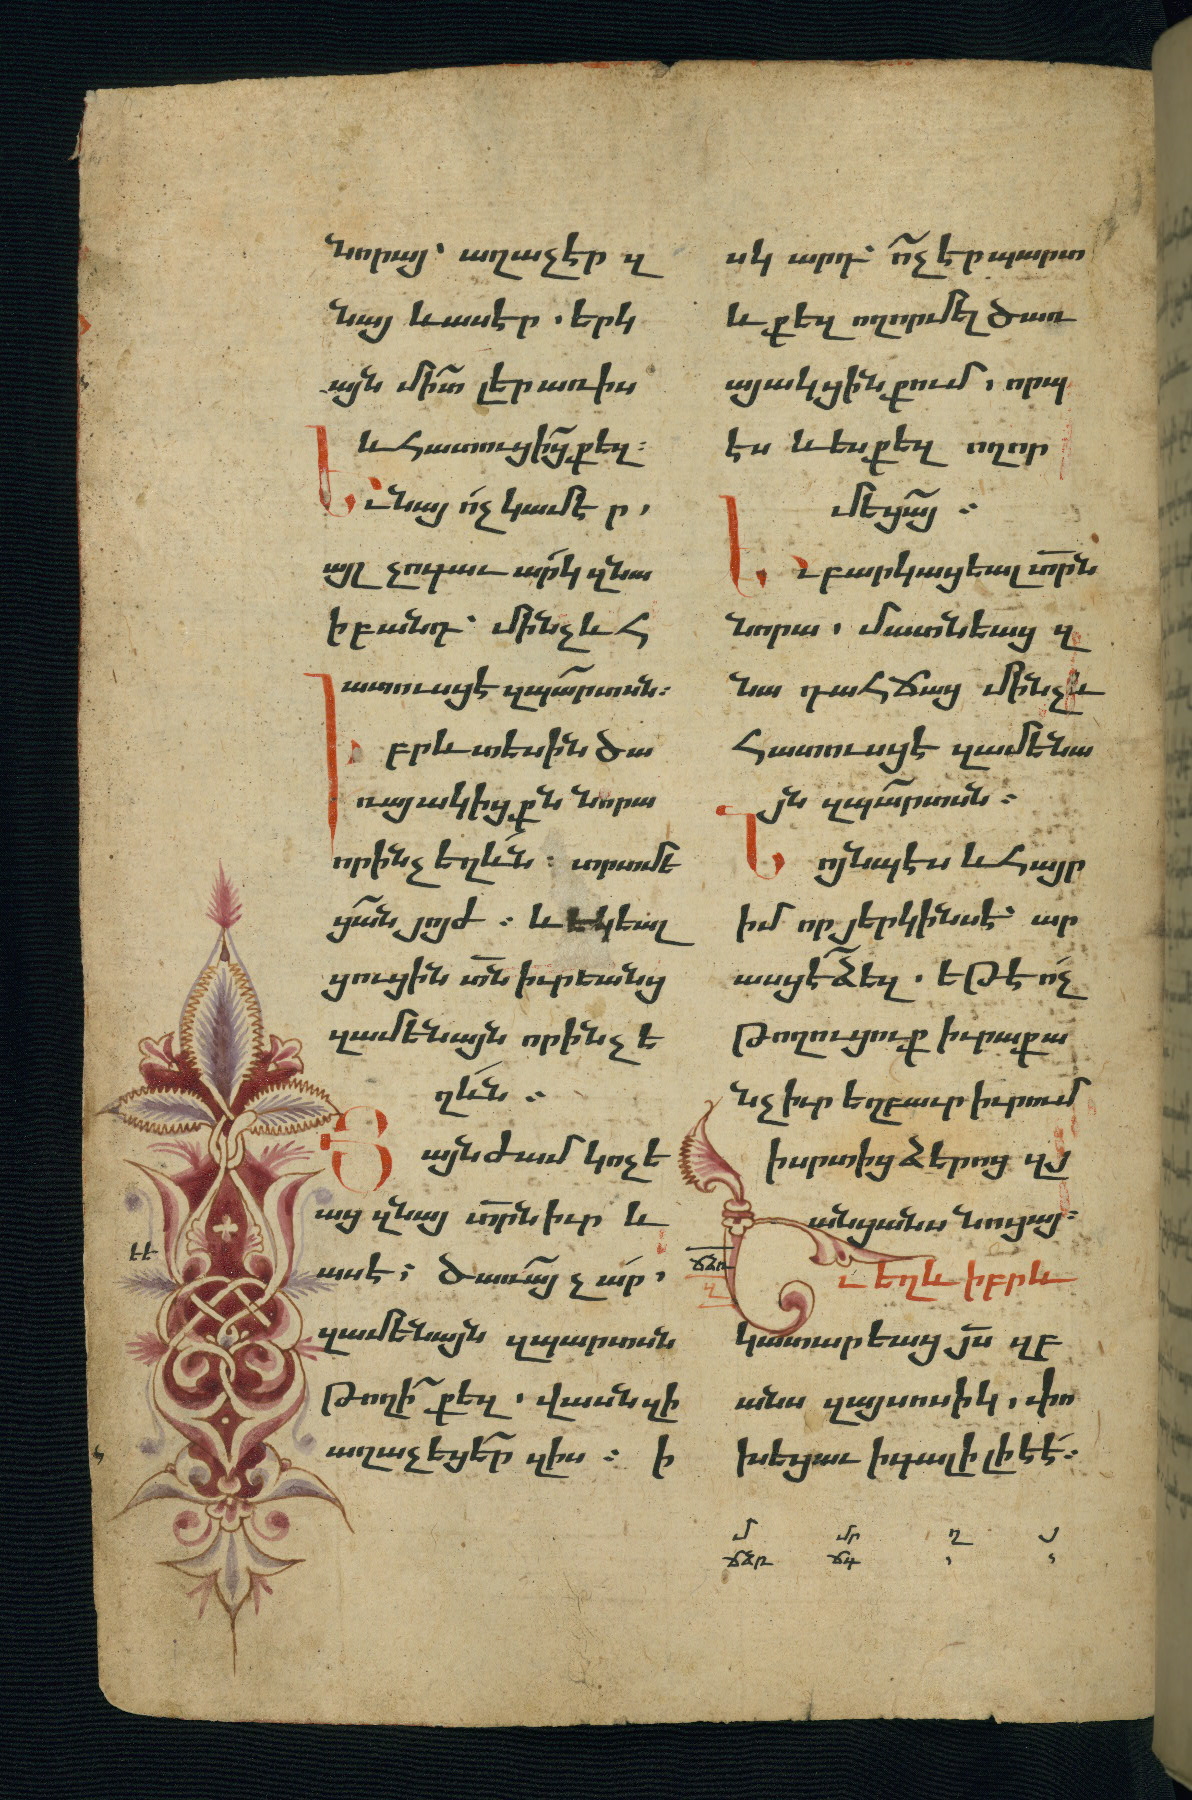 նորայ՝ աղաչէր զ
նայ և ասէր. երկ
այն մի՜տ լեր առ իս
և հատուցի՜ց քեզ։
Եւ նայ ո՛չ կամէ ր,
այլ չոգաւ ա՛րկ զնա
ի բանդ՝ մինչև հ
ատուսցէ զպա՜րտսն։
Իբրև տեսին ծա
ռայակիցքն նորա
որինչ եղևն։ տրտմե
ցա՜ն յոյժ։ և եկեալ
ցուցին տ̅ն իւրեանց
զամենայն որինչ ե
ղև՛ն։
Յայնժամ կոչե
աց զնայ տ̅րն իւր և
ասէ; ծառա՜յ չ ա՛ր,
զամենայն զպարտսն
թողի՜ քեզ, վասն զի
աղաչեցե՜ր զիս։ ի
սկ արդ՝ ո՜չ էր պարտ
և քեզ ողորմել ծառ
այակցին քում, որպ
էս և ես քեզ ողոր
մեցա՜յ։
Եւ բարկացեալ տ̅րն
նորա, մատնեաց զ
նա դահճաց մինչև
հատուսցէ զամենա
յն զպա՜րտսն։
Նոյնպէս և հայր
իմ որ յերկինսէ՝ ար
ասցէ՜ ձեզ. եթէ ո՛չ
թողուցուք իւրաքա
նչիւր եղբաւր իւրում
ի սրտից ձերոց զյ
անցանս նոցայ։
Եւ եղև իբրև
կատարեաց յ̅ս զբ
անս զայսոսիկ, փո
խեցաւ ի գալիլիէէ՛։